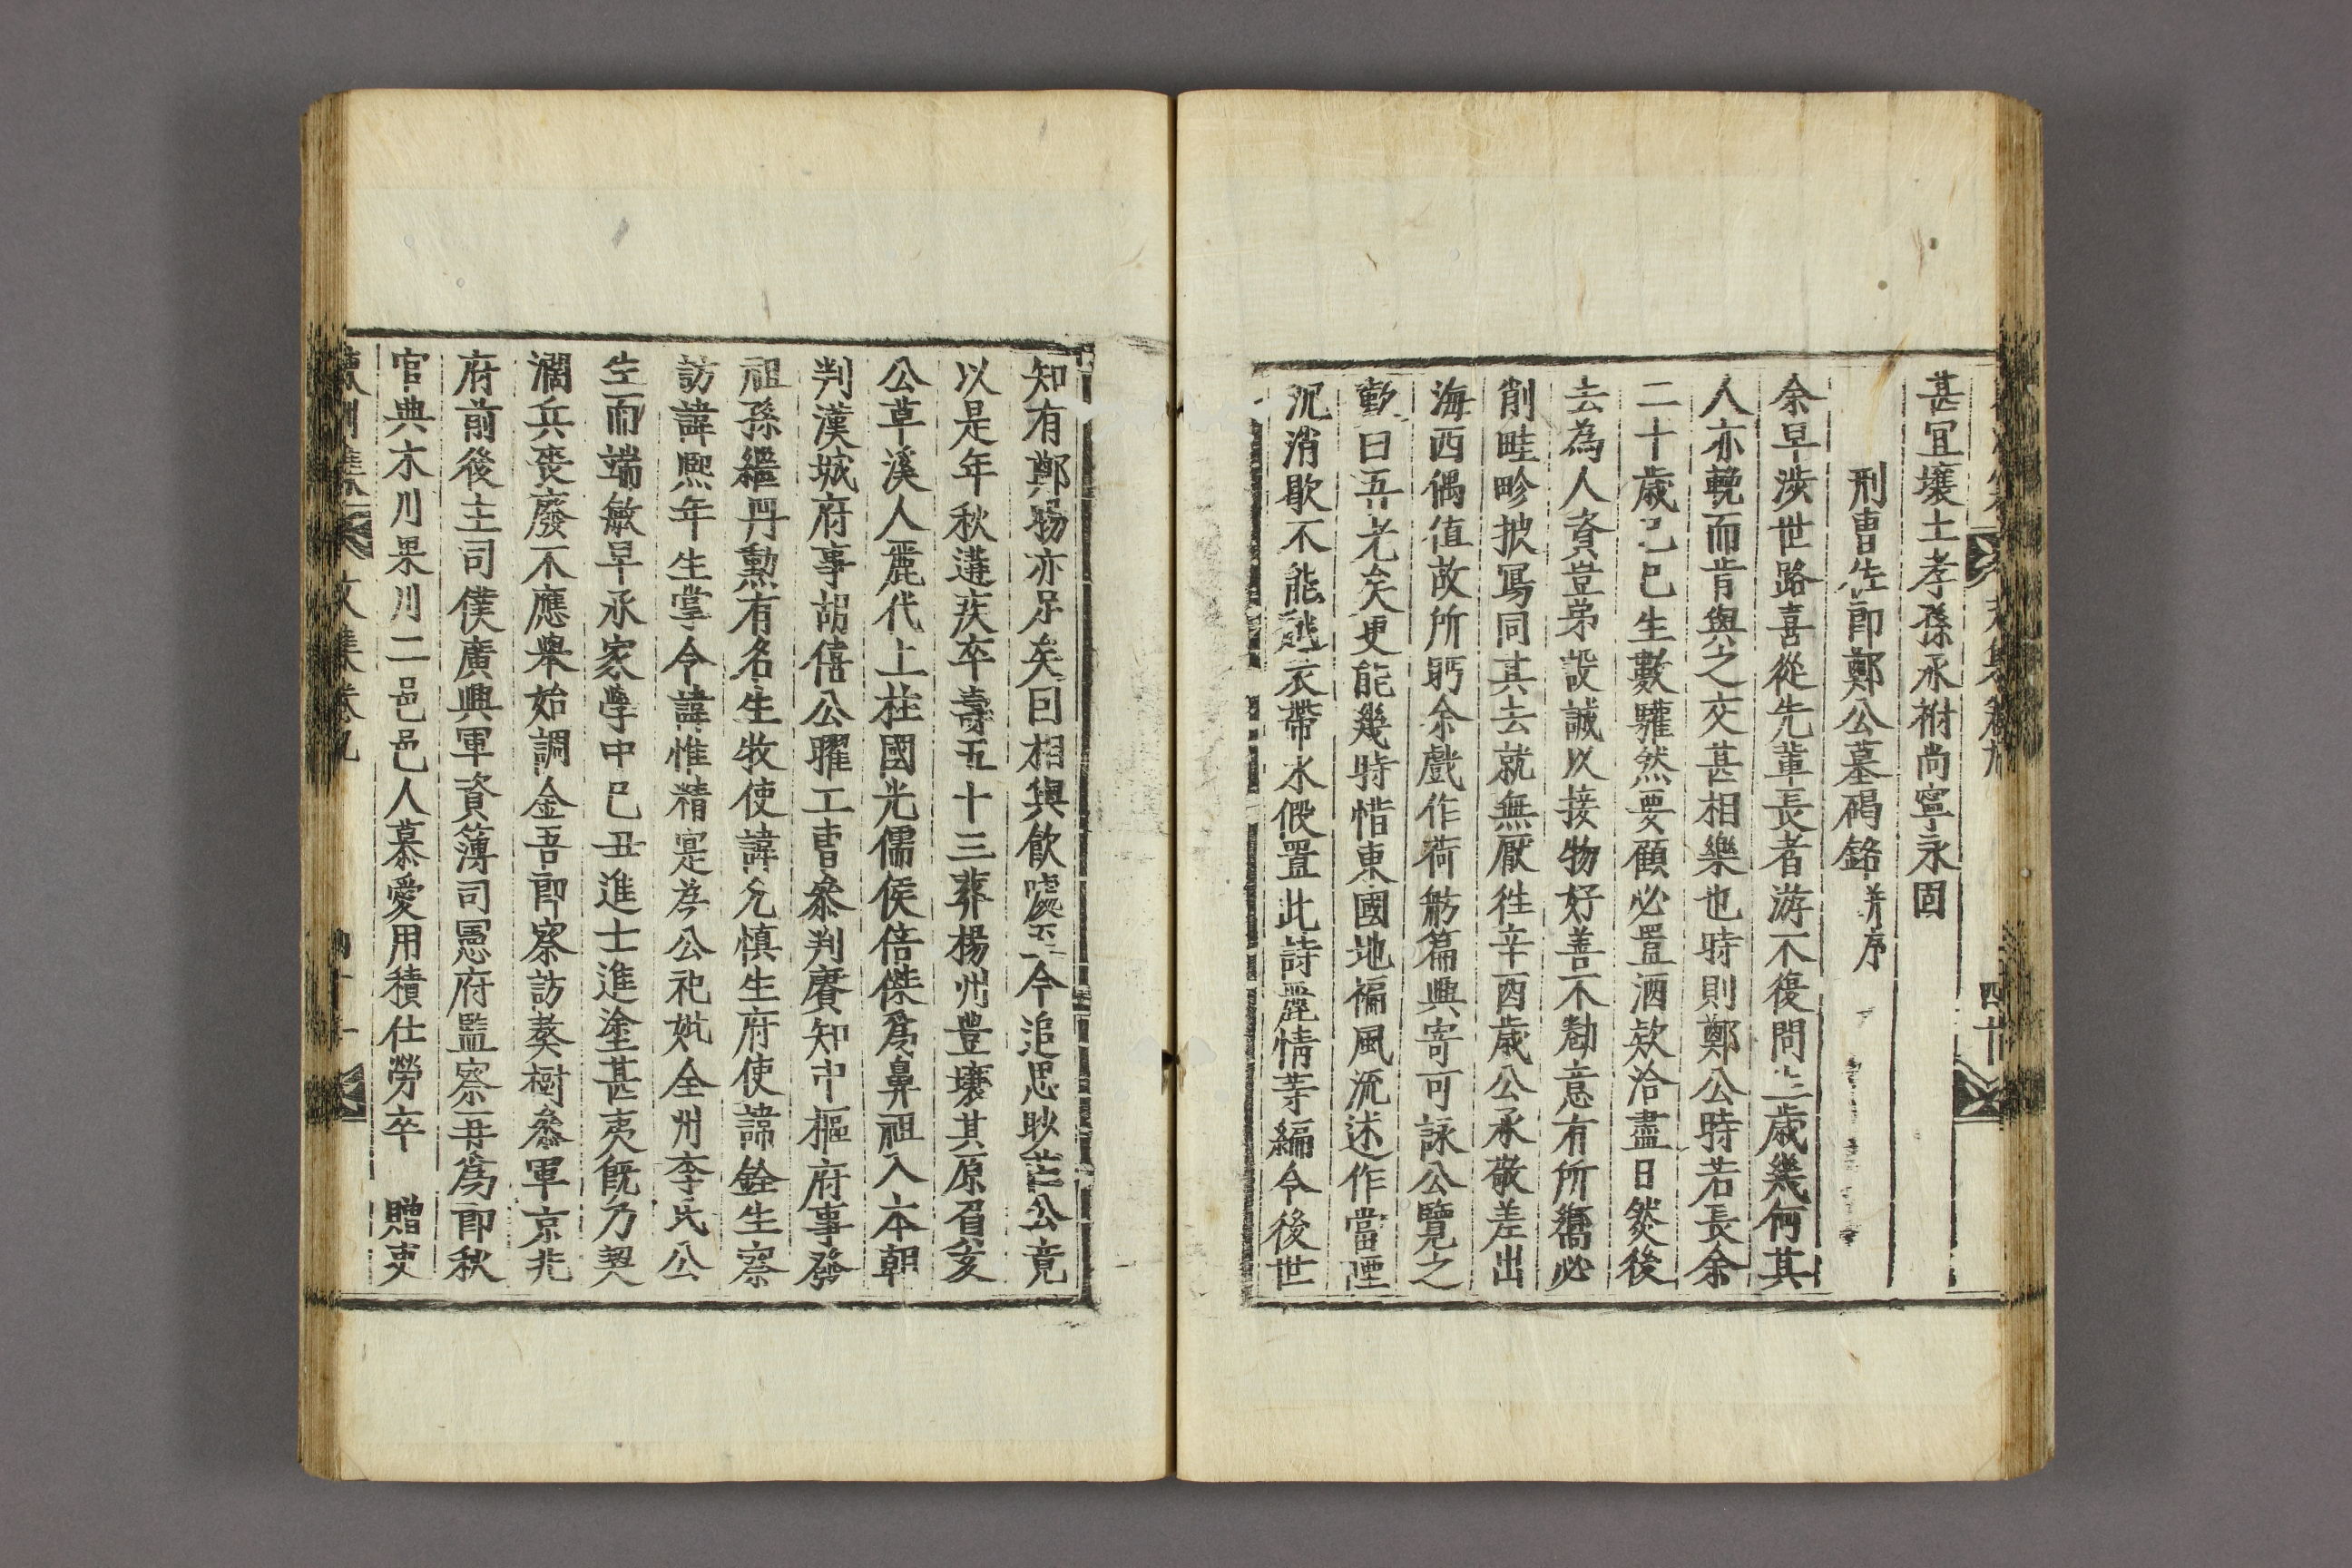 甚宜壤土孝孫承祔尚寧永固
刑曹佐郎鄭公墓碣銘 幷序
余早涉世路喜從先輩長者游不復問生歲幾何其
人亦輓而肯與之交甚相樂也時則鄭公時若長余
二十歲己巳生數驩然要顧必置酒欵洽盡日然後
去為人資豈弟設誠以接物好善不勌意有所嚮必
削畦畛披寫同其去就無厭徃辛酉歲公承敬差出
海西偶值故所眄余戲作荷觴篇興寄可詠公覽之
歎曰吾老矣更能幾時惜東國地褊風流述作當堙
沉消歇不能越衣帶水假置此詩麗情等編令後世
知有鄭昜亦足矣曰相與飲噱至今追思眇茫公竟
以是年秋遘疾卒壽五十三葬楊州豊壤其原眉亥
公草溪人麗代上柱國光儒侯倍傑爲鼻祖入本朝
判漢城府事胡僖公曜工曹叅判賡知中樞府事發
祖孫繼丹勳有名生牧使諱允愼生府使諱銓生察
訪諱熙年生掌令諱惟精寔爲公祀妣全州李氏公
生而端敏早承家學中己丑進士進塗甚夷旣乃契
濶兵喪廢不應擧始調金吾郎察訪獒樹叅軍京兆
府前後主司僕廣興軍資簿司憲府監察再爲郎秋
官典木川果川二邑邑人慕愛用積仕勞卒 贈吏
文集卷九
四十